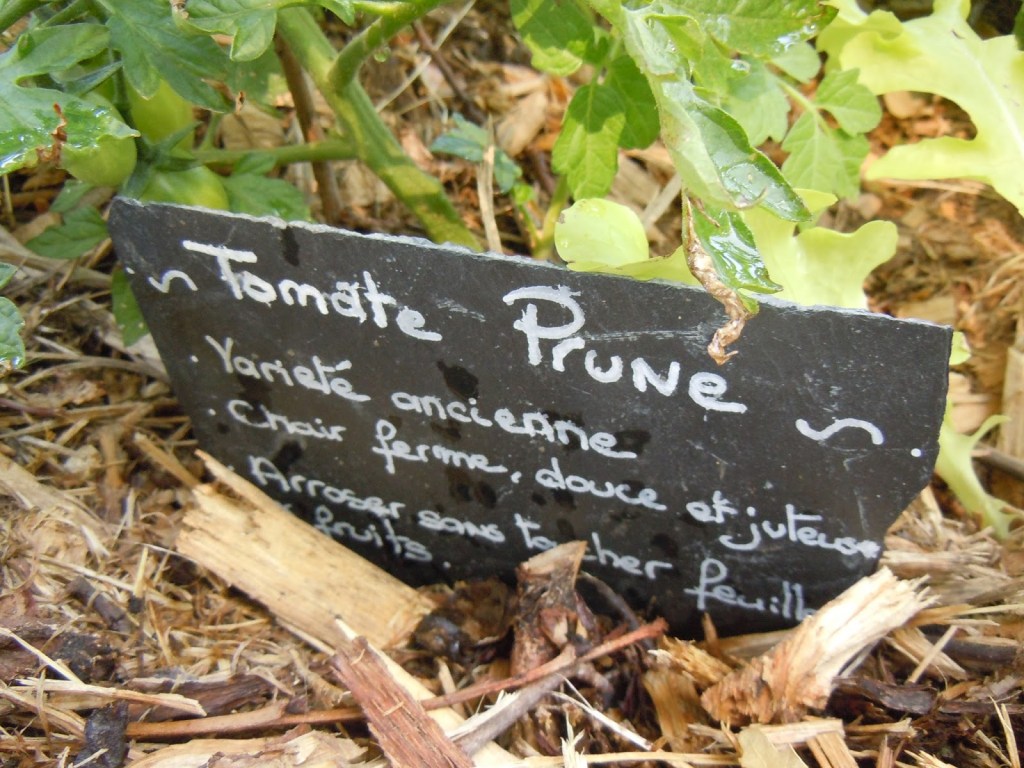 ~ Tomate Prune ~
. Variété ancienne
. Chair ferme, douce et juteuse
. Arroser sans toucher feuill
fruits.